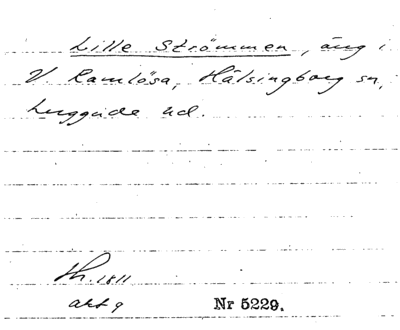 Lille Strömmen, äng i
V. Ramlösa, Hälsingborg sn,
Luggude hd.
Sk. 1811
akt 9
Nr 5229.